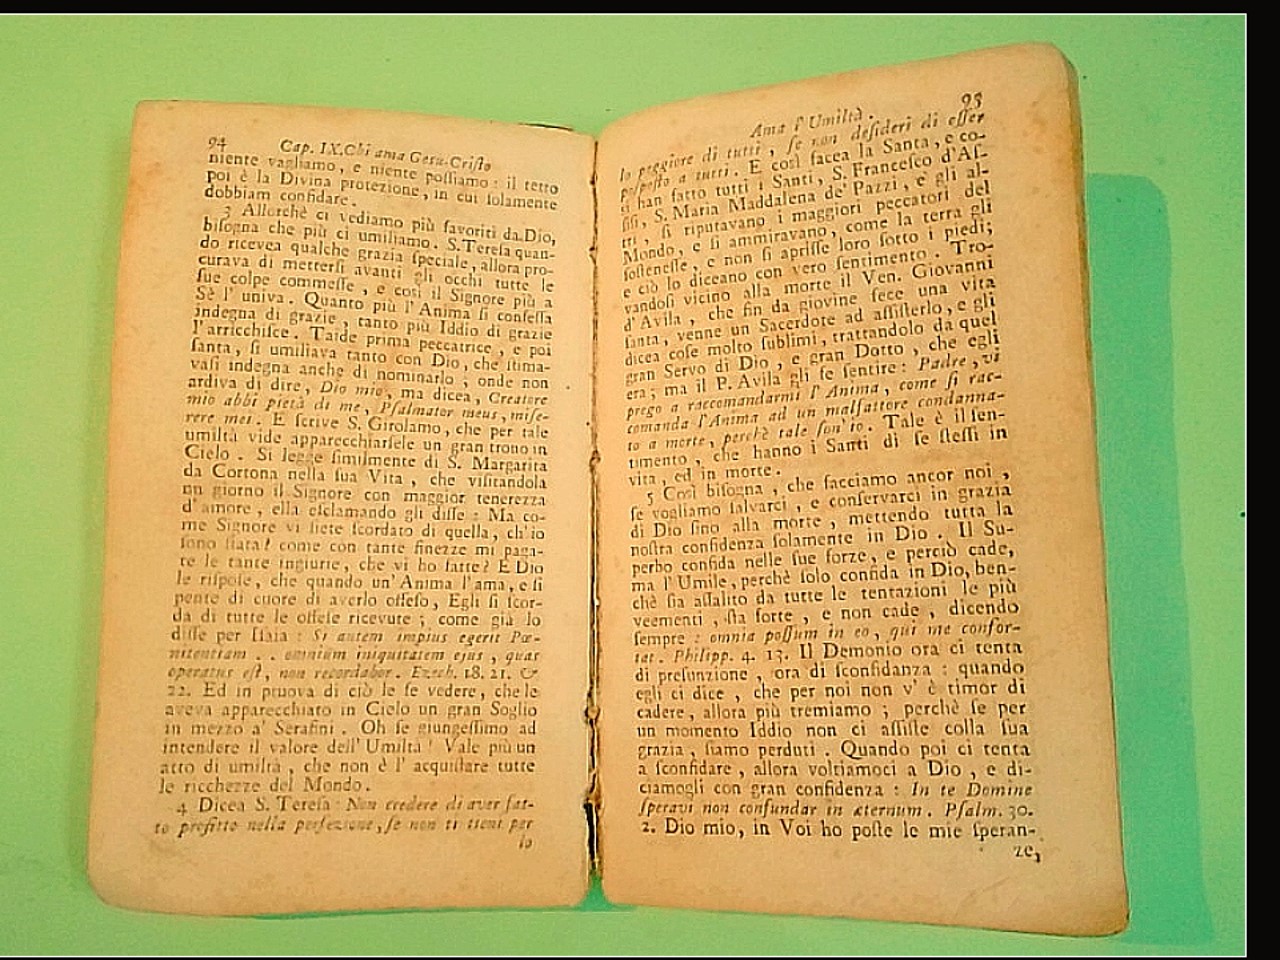 94 Cap. IX. Chi ama Gesu-Cristo
niente vagliamo, e niente poſſiamo: il tetto
poi è la Divina protezione, in cui ſolamente
dobbiam confidare.
3 Allorchè ci vediamo più favoriti da Dio,
biſogna che più ci umiliamo. S. Tereſa quan-
do ricevea qualche grazia ſpeciale, allora pro-
curava di metterſi avanti gli occhi tutte le
ſue colpe commeſſe, e così il Signore più a
Sè l' univa. Quanto più l'Anima ſi confeſſa
indegna di grazie, tanto più Iddio di grazie
l'arricchiſce. Taide prima peccatrice, e poi
ſanta, ſi umiliava tanto con Dio, che ſtima-
vaſi indegna anche di nominarlo; onde non
ardiva di dire, Dio mio, ma dicea, Creatore
mio abbi pietà di me, Pſalmator meus, miſe-
rere mei. E ſcrive S. Girolamo, che per tale
umiltà vide apparecchiarſele un gran trono in
Cielo. Si legge ſimilmente di S. Margarita
da Cortona nella ſua Vita, che viſitandola
un giorno il Signore con maggior tenerezza
d'amore, ella eſclamando gli diſſe: Ma co-
me Signore vi ſiete ſcordato di quella, ch'io
ſono ſtata? come con tante finezze mi paga-
te le tante ingiurie, che vi ho fatte? E Dio
le riſpoſe, che quando un'Anima l'ama, e ſi
pente di cuore di averlo offeſo, Egli ſi ſcor-
da di tutte le offeſe ricevute; come già lo
diſſe per Iſaia: Si autem impius egerit Pœ-
nitentiam .. omnium iniquitatem ejus, quas
operatus eſt, non recordabor. Ezech. 18. 21. &
22. Ed in pruova di ciò le fe vedere, che le
aveva apparecchiato in Cielo un gran Soglio
in mezzo a' Serafini. Oh ſe giungeſſimo ad
intendere il valore dell'Umiltà! Vale più un
atto di umiltà, che non è l' acquiſtare tutte
le ricchezze del Mondo.
4 Dicea S. Tereſa: Non credere di aver fat-
to profitto nella perfezione, ſe non ti tieni per
lo
Ama l'Umiltà. 95
lo peggiore di tutti, ſe non deſideri di eſſer
poſpoſto a tutti. E così facea la Santa, e co-
sì han fatto tutti i Santi, S. Franceſco d'Aſ-
ſiſi, S. Maria Maddalena de' Pazzi, e gli al-
tri, ſi riputavano i maggiori peccatori del
Mondo, e ſi ammiravano, come la terra gli
ſoſteneſſe, e non ſi apriſſe loro ſotto i piedi;
e ciò lo diceano con vero ſentimento. Tro-
vandoſi vicino alla morte il Ven. Giovanni
d'Avila, che fin da giovine fece una vita
ſanta, venne un Sacerdote ad aſſiſterlo, e gli
dicea coſe molto ſublimi, trattandolo da quel
gran Servo di Dio, e gran Dotto, che egli
era; ma il P. Avila gli fe ſentire: Padre, vi
prego a raccomandarmi l'Anima, come ſi rac-
comanda l'Anima ad un malfattore condanna-
to a morte, perchè tale ſon'io. Tale è il ſen-
timento, che hanno i Santi di ſe ſteſſi in
vita, ed in morte.
5 Così biſogna, che facciamo ancor noi,
ſe vogliamo ſalvarci, e conſervarci in grazia
di Dio fino alla morte, mettendo tutta la
noſtra confidenza ſolamente in Dio. Il Su-
perbo confida nelle ſue forze, e perciò cade,
ma l'Umile, perchè ſolo confida in Dio, ben-
chè ſia aſſalito da tutte le tentazioni le più
veementi, ſta forte, e non cade, dicendo
ſempre: omnia poſſum in eo, qui me confor-
tat. Philipp. 4. 13. Il Demonio ora ci tenta
di preſunzione, ora di ſconfidanza: quando
egli ci dice, che per noi non v' è timor di
cadere, allora più tremiamo; perchè ſe per
un momento Iddio non ci aſſiſte colla ſua
grazia, ſiamo perduti. Quando poi ci tenta
a ſconfidare, allora voltiamoci a Dio, e di-
ciamogli con gran confidenza: In te Domine
ſperavi non confundar in æternum. Pſalm. 30.
2. Dio mio, in Voi ho poſte le mie ſperan-
ze,